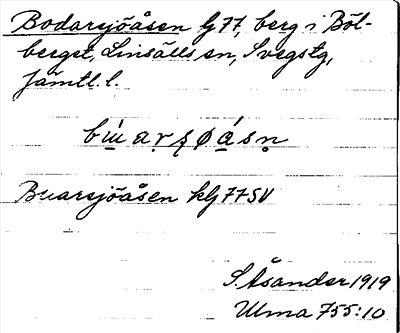 Bodarsjöåsen G 77, berg i Böl-
berget, Linsälls sn, Svegs tg,
Jämtl. l.
Buarsjöåsen kG 77 SV
S. Åsander 1919
Ulma 755:10